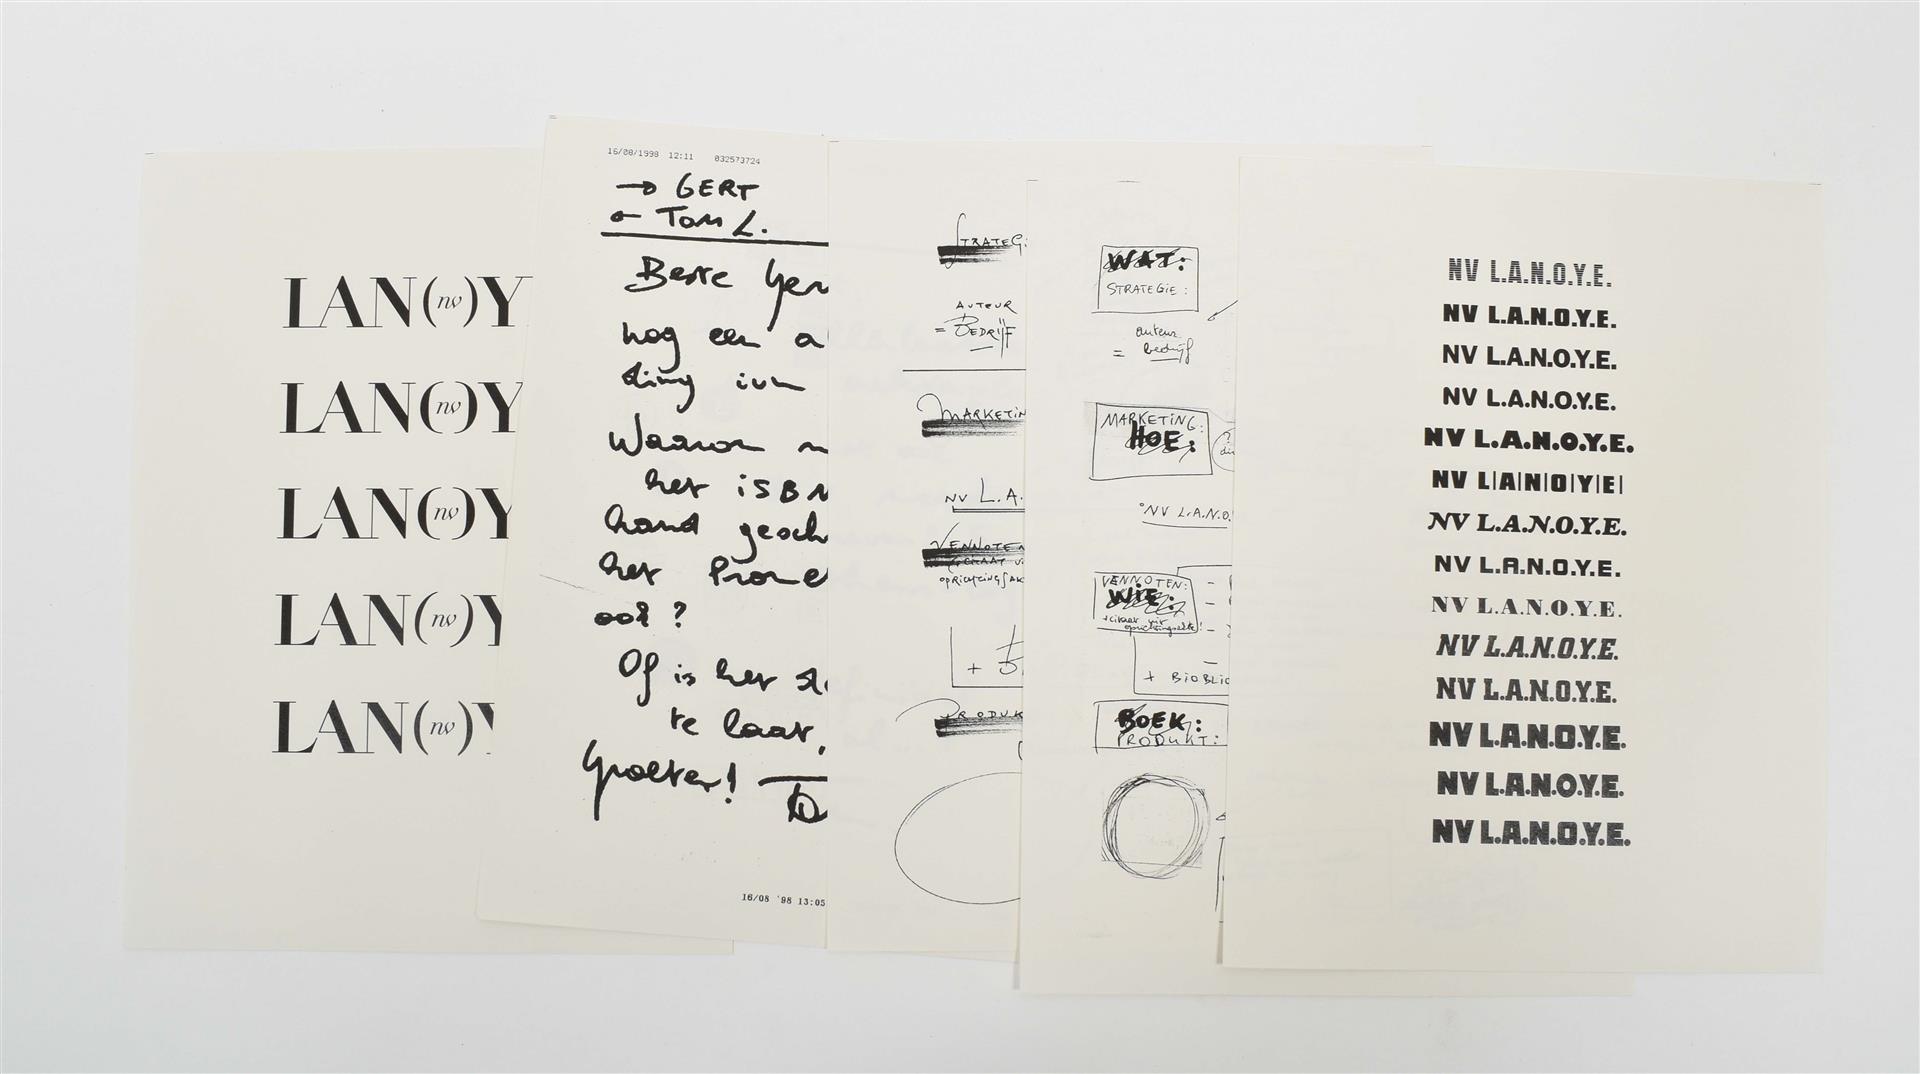 LAN(nv)Y
LAN(nv)Y
LAN(nv)Y
LAN(nv)Y
LAN(nv)Y
16/08/1998 12:11 032573724
→ GERT
← Tom L.
Beste Ger
nog een a
ding ivm
Waarom
het ISBN
hand gesch
het Prome
ook?
Of is het
te laat,
Groeten!
16/08 '98 13:05
STRATEG
AUTEUR
= BEDRIJF
MARKETIN
NV L.A.
VENNOTEN
OPRICHTINGSAK
+ B
PRODUK
WAT:
STRATEGIE:
auteur
= bedrijf
MARKETING:
HOE:
NV L.A.N.O.
VENNOTEN:
WIE:
+ BIOBLIO
BOEK:
PRODUKT:
NV L.A.N.O.Y.E.
NV L.A.N.O.Y.E.
NV L.A.N.O.Y.E.
NV L.A.N.O.Y.E.
NV L.A.N.O.Y.E.
NV L|A|N|O|Y|E|
NV L.A.N.O.Y.E.
NV L.A.N.O.Y.E.
NV L.A.N.O.Y.E.
NV L.A.N.O.Y.E.
NV L.A.N.O.Y.E.
NV L.A.N.O.Y.E.
NV L.A.N.O.Y.E.
NV L.A.N.O.Y.E.